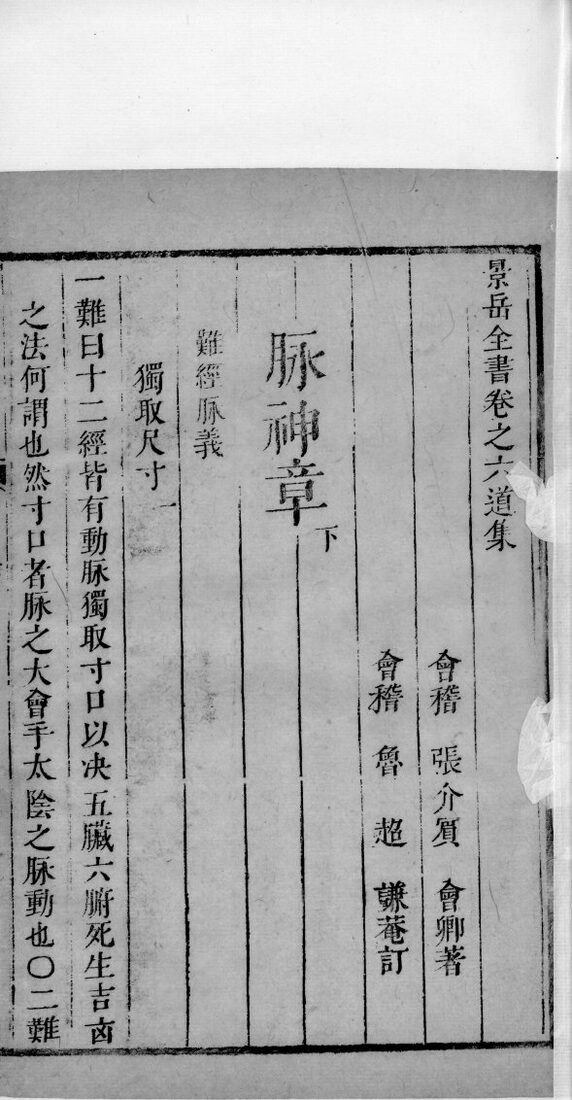 景岳全書卷之六道集
會稽 張介賔 會卿著
會稽 魯 超 謙菴訂
脉神章 下
難經脉義
獨取尺寸一
一難曰十二經皆有動脉獨取寸口以决五臟六腑死生吉㐫
之法何謂也然寸口者脉之大會手太陰之脉動也〇二難